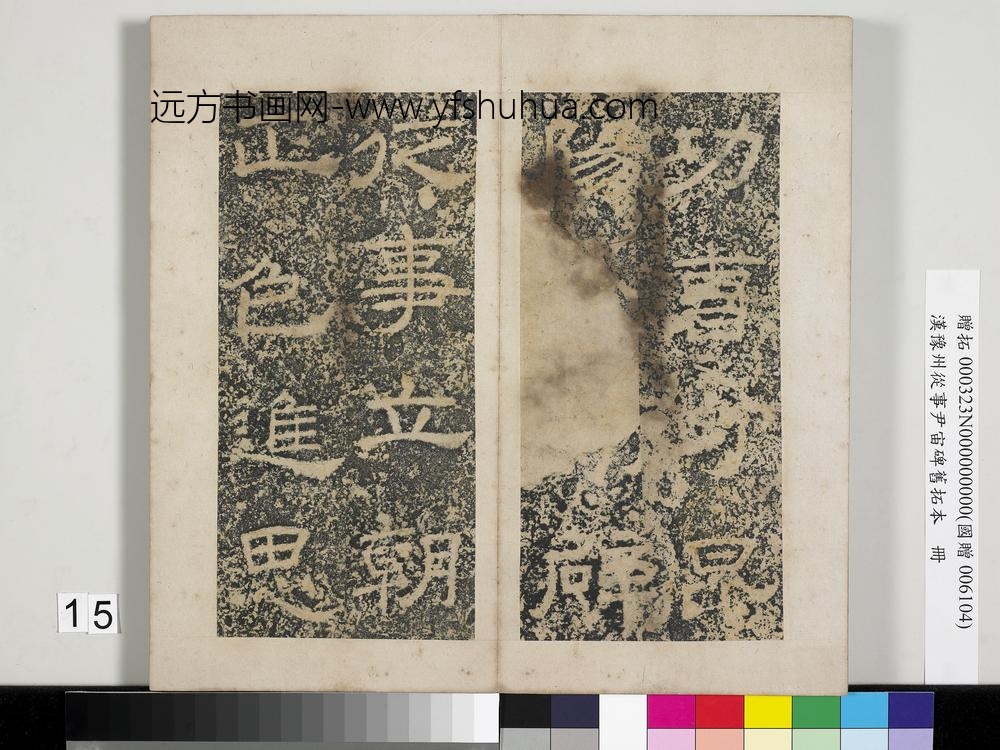 远方书画网-www.yfshuhua.com
功
昆
陽
辟
從事立朝
正色進思
贈拓 000323N000000000(國贈 006104)
漢豫州從事尹宙碑舊拓本 冊
15